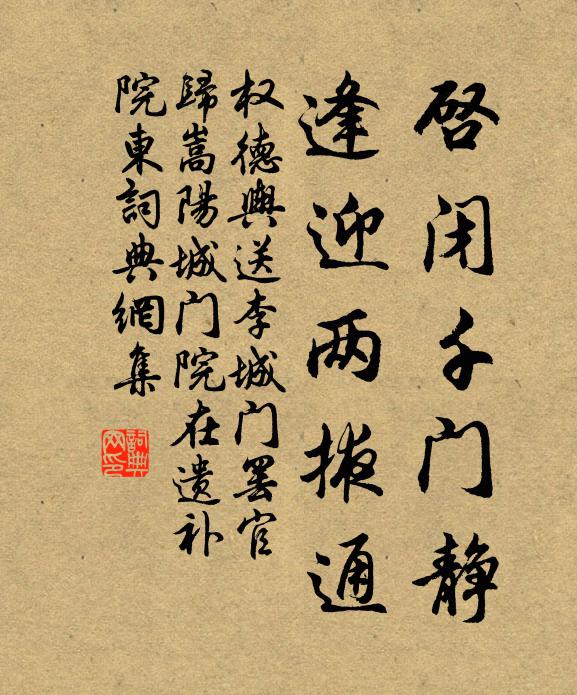 啓闭千门静
逢迎两掖通
权德輿送李城门罢官
歸嵩陽城门院在遗补
院東詞典網集
詞典
网印